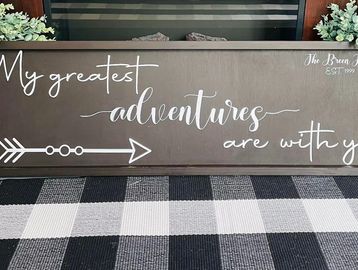 My greatest
The Breen
EST 1999
adventures
are with y